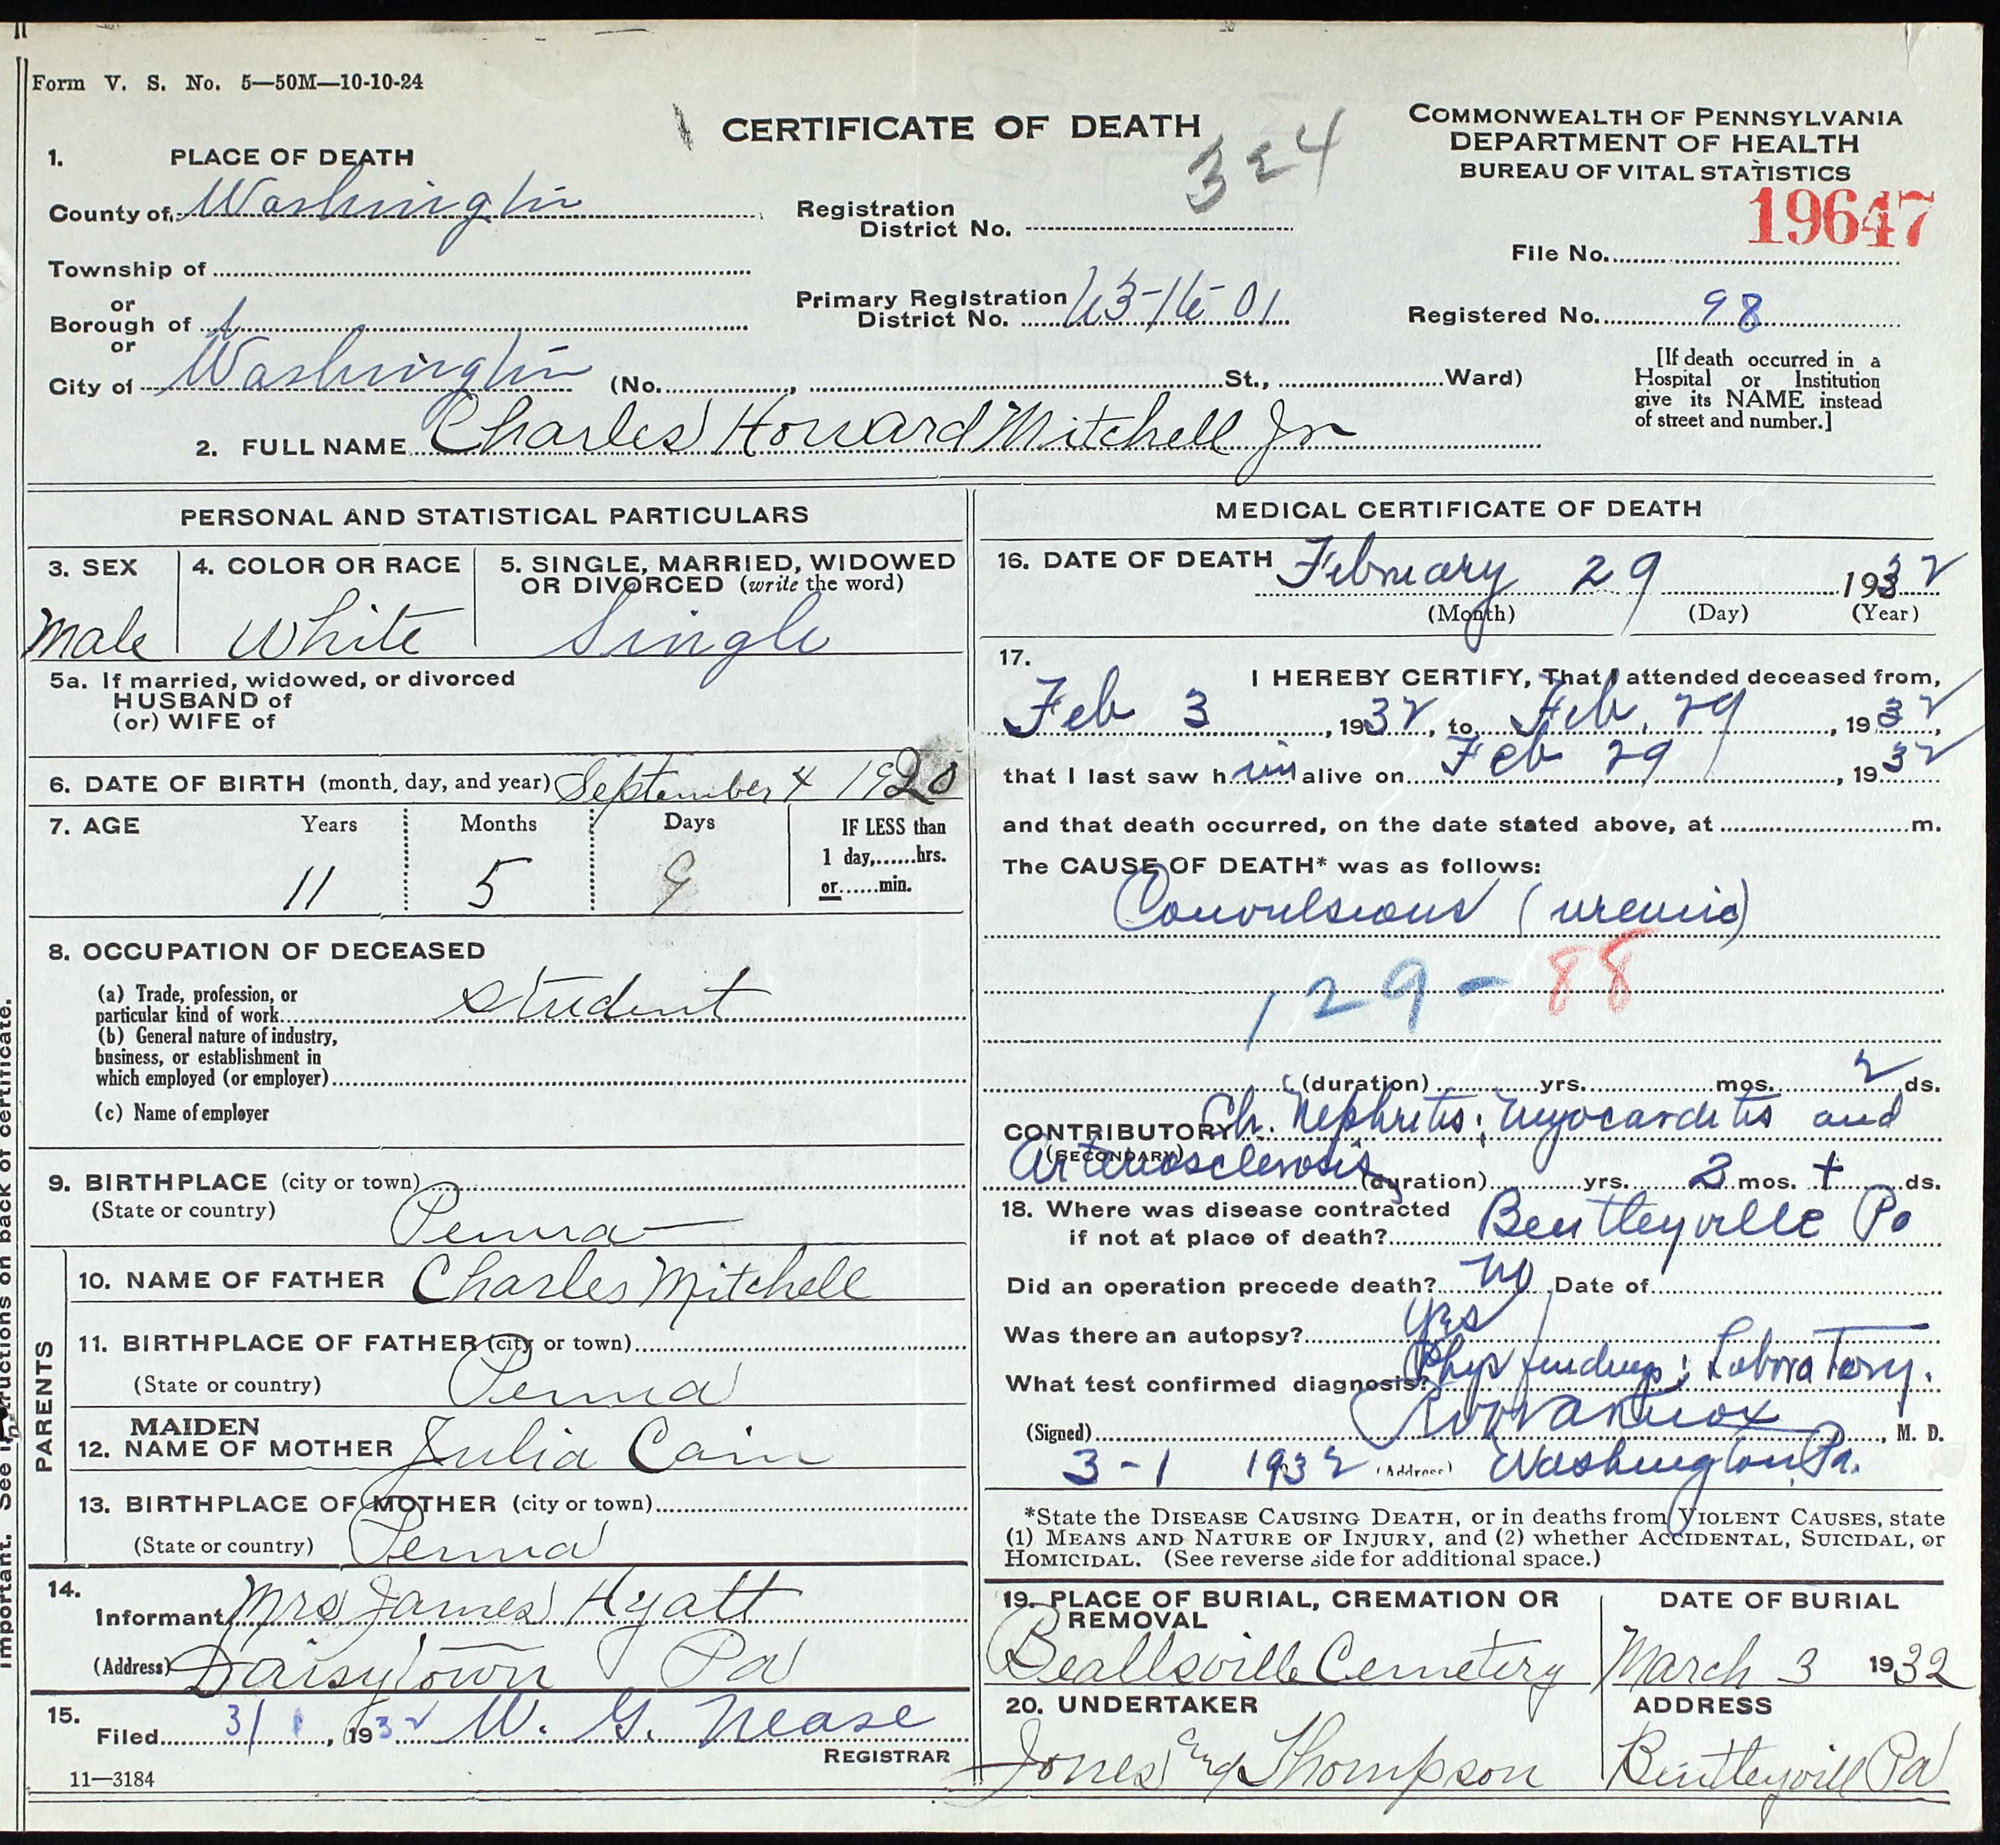 Form V. S. No. 5—50M—10-10-24
CERTIFICATE OF DEATH
COMMONWEALTH OF PENNSYLVANIA
DEPARTMENT OF HEALTH
BUREAU OF VITAL STATISTICS
324
19647
1. PLACE OF DEATH
County of Washington
Registration District No.
File No.
Township of
or
Borough of
Primary Registration District No. 63-16-01
Registered No. 98
or
City of Washington (No. , St., Ward)
[If death occurred in a
Hospital or Institution
give its NAME instead
of street and number.]
2. FULL NAME Charles Howard Mitchell Jr
PERSONAL AND STATISTICAL PARTICULARS
3. SEX
Male
4. COLOR OR RACE
White
5. SINGLE, MARRIED, WIDOWED
OR DIVORCED (write the word)
Single
5a. If married, widowed, or divorced
HUSBAND of
(or) WIFE of
6. DATE OF BIRTH (month, day, and year) September 4 1920
7. AGE Years Months Days IF LESS than
1 day,......hrs.
or......min.
11 5 9
8. OCCUPATION OF DECEASED
(a) Trade, profession, or
particular kind of work student
(b) General nature of industry,
business, or establishment in
which employed (or employer)
(c) Name of employer
9. BIRTHPLACE (city or town)
(State or country) Penna
PARENTS
10. NAME OF FATHER Charles Mitchell
11. BIRTHPLACE OF FATHER (city or town)
(State or country) Penna
MAIDEN
12. NAME OF MOTHER Julia Cain
13. BIRTHPLACE OF MOTHER (city or town)
(State or country) Penna
14.
Informant Mrs James Hyatt
(Address) Daisytown Pa
15.
Filed 3/1, 1932 W. G. Nease
REGISTRAR
11—3184
MEDICAL CERTIFICATE OF DEATH
16. DATE OF DEATH February 29 1932
(Month) (Day) (Year)
17.
I HEREBY CERTIFY, That I attended deceased from,
Feb 3, 1932, to Feb. 29, 1932,
that I last saw him alive on Feb 29, 1932
and that death occurred, on the date stated above, at m.
The CAUSE OF DEATH* was as follows:
Convulsions (uremic)
129-88
(duration) yrs. mos. 2 ds.
CONTRIBUTORY Ch. Nephritis; Myocarditis and
(SECONDARY)
Arteriosclerosis (duration) yrs. 2 mos. + ds.
18. Where was disease contracted
if not at place of death? Bentleyville Pa
Did an operation precede death? no Date of
Was there an autopsy? yes
What test confirmed diagnosis? Phys findings; Laboratory.
(Signed) , M. D.
3-1 1932 (Address) Washington, Pa.
*State the DISEASE CAUSING DEATH, or in deaths from VIOLENT CAUSES, state
(1) MEANS AND NATURE OF INJURY, and (2) whether ACCIDENTAL, SUICIDAL, or
HOMICIDAL. (See reverse side for additional space.)
19. PLACE OF BURIAL, CREMATION OR
REMOVAL
Beallsville Cemetery
DATE OF BURIAL
March 3 1932
20. UNDERTAKER
Jones and Thompson
ADDRESS
Bentleyvill Pa
important. See instructions on back of certificate.